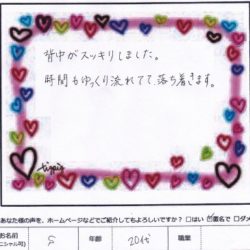 背中がスッキリしました。
時間もゆっくり流れてて落ち着きます。
あなた様の声を、ホームページなどでご紹介してもよろしいですか？ □はい ☑匿名で □ダメ
お名前
ニシャル可) S 年齢 20代 職業